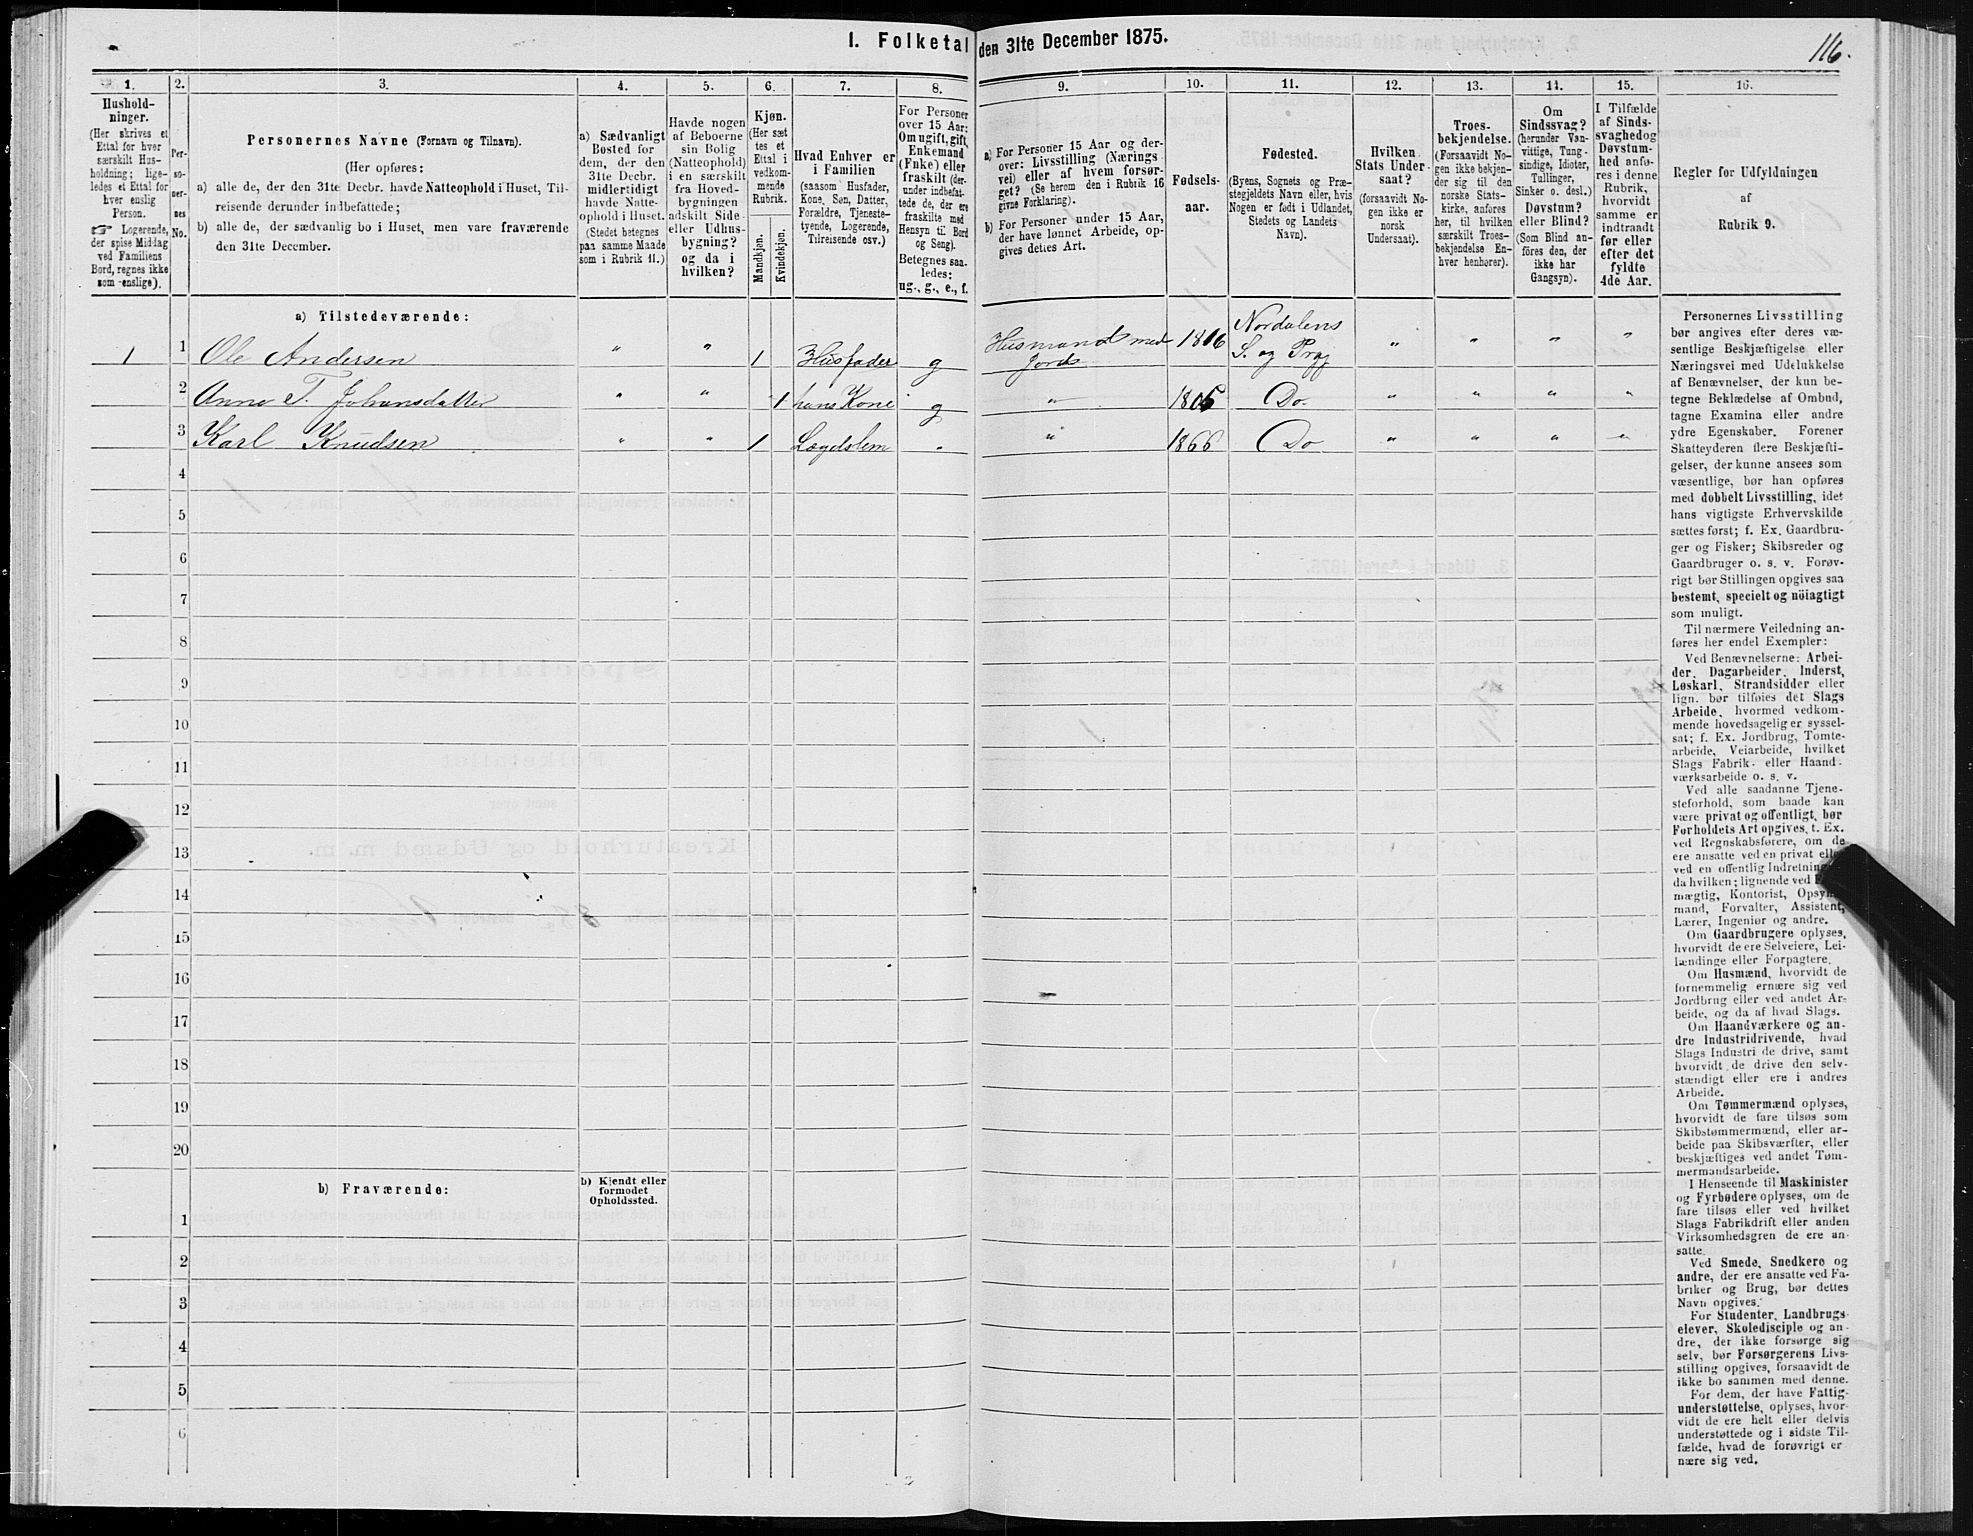 I. Folketal den 31te December 1875.
116.
1.
Hushold-
ninger.
(Her skrives et
Ettal for hver
særskilt Hus-
holdning; lige-
ledes et Ettal for
hver enslig
Person.
☞ Logerende,
der spise Middag
ved Familiens
Bord, regnes ikke
som enslige).
2.
Per-
so-
ner-
nes
No.
3.
Personernes Navne (Fornavn og Tilnavn).
(Her opføres:
a) alle de, der den 31te Decbr. havde Natteophold i Huset, Til-
reisende derunder indbefattede;
b) alle de, der sædvanlig bo i Huset, men vare fraværende
den 31te December.
4.
a) Sædvanligt
Bosted for
dem, der den
31te Decbr.
midlertidigt
havde Natte-
ophold i Huset.
(Stedet betegnes
paa samme Maade
som i Rubrik 11.)
5.
Havde nogen
af Beboerne
sin Bolig
(Natteophold)
i en særskilt
fra Hoved-
bygningen
adskilt Side-
eller Udhus-
bygning?
og da i
hvilken?
6.
Kjøn.
(Her sæt
tes et
Ettal i
vedkom-
mende
Rubrik.
Mandkjøn.
Kvindekjøn.
7.
Hvad Enhver er
i Familien
(saasom Husfader,
Kone, Søn, Datter,
Forældre, Tjeneste-
tyende, Logerende,
Tilreisende osv.)
8.
For Personer
over 15 Aar:
Om ugift, gift,
Enkemand
(Enke) eller
fraskilt (der-
under indbefat-
tede de, der ere
fraskilte med
Hensyn til Bord
og Seng).
Betegnes saa-
ledes:
ug., g., e., f.
9.
a) For Personer 15 Aar og der-
over: Livsstilling (Nærings
vei) eller af hvem forsør-
get? (Se herom den i Rubrik 16
givne Forklaring).
b) For Personer under 15 Aar,
der have lønnet Arbeide, op-
gives detties Art.
10.
Fødsels-
aar.
11.
Fødested.
(Byens, Sognets og Præ-
stegjeldets Navn eller, hvis
Nogen er født i Udlandet,
Stedets og Landets
Navn).
12.
Hvilken
Stats Under-
saat?
(forsaavidt No-
gen ikke er
norsk
Undersaat).
13.
Troes-
bekjendelse.
(Forsaavidt No-
gen ikke bekjen-
der sig til den
norske Stats-
kirke, anføres
her, til hvilken
særskilt Troes-
bekjendelse En-
hver henhører).
14.
Om
Sindssvag?
(herunder Van-
vittige, Tung-
sindige, Idioter,
Tullinger,
Sinker o. desl.)
Døvstum?
eller Blind?
(Som Blind an-
føres den, der
ikke har
Gangsyn).
15.
I Tilfælde
af Sinds-
svaghed og
Døvstum-
hed anfø-
res i denne
Rubrik,
hvorvidt
samme er
indtraadt
før eller
efter det
fyldte
4de Aar.
16.
Regler for Udfyldningen
af
Rubrik 9.
a) Tilstedeværende:
1 1 Ole Andersen " " 1 Husfader g Husmand med Jord 1806 Nordalens S. og Prgj " " " "
2 Anne T. Johansdatter " " 1 hans Kone g " 1806 Do. " " " "
3 Karl Knudsen " " 1 Lægdslem " " 1866 Do " " " "
4
5
6
7
8
9
10
11
12
13
14
15
16
17
18
19
20
b) Fraværende:
b) Kjendt eller
formodet
Opholdssted.
1
2
3
4
5
6
Personernes Livsstilling
bør angives efter deres væ-
sentlige Beskjæftigelse eller
Næringsvei med Udelukkelse
af Benævnelser, der kun be-
tegne Beklædelse af Ombud,
tagne Examina eller andre
ydre Egenskaber. Forener
Skatteyderen flere Beskjæfti-
gelser, der kunne ansees som
væsentlige, bør han opføres
med dobbelt Livsstilling, idet
hans vigtigste Erhvervskilde
sættes først; f. Ex. Gaardbru-
ger og Fisker; Skibsreder og
Gaardbruger o. s. v. Forøv-
rigt bør Stillingen opgives saa
bestemt, specielt og nöiagtigt
som muligt.
Til nærmere Veiledning an-
føres her endel Exempler:
Ved Benævnelserne: Arbei-
der, Dagarbeider, Inderst,
Løskarl, Strandsidder eller
lign. bør tilføies det Slags
Arbeide, hvormed vedkom-
mende hovedsagelig er syssel-
sat; f. Ex. Jordbrug, Tomte-
arbeide, Veiarbeide, hvilket
Slags Fabrik- eller Haand-
værksarbeide o. s. v.
Ved alle saadanne Tjene-
steforhold, som baade kan
være privat og offentligt, bør
Forholdets Art opgives, t. Ex.
ved Regnskabsførere, om de
ere ansatte ved en privat eller
ved en offentlig Indretning,
da hvilken; lignende ved
mægtig, Kontorist, Opsyns-
mand, Forvalter, Assistent,
Lærer, Ingeniør og andre.
Om Gaardbrugere oplyses,
hvorvidt de ere Selveiere, Lei-
lændinge eller Forpagtere.
Om Husmænd, hvorvidt de
fornemmelig ernære sig ved
Jordbrug eller ved andet Ar-
beide, og da af hvad Slags.
Om Haandværkere og an-
dre Industridrivende, hvad
Slags Industri de drive, samt
hvorvidt de drive den selv-
stændigt eller ere i andres
Arbeide.
Om Tømmermænd oplyses,
hvorvidt de fare tilsøs som
Skibstømmermænd, eller ar-
beide paa Skibsværfter, eller
beskjæftiges ved andet Tøm-
mermandsarbeide.
I Henseende til Maskinister
og Fyrbødere oplyses, om de
fare tilsøs eller ved hvilket
Slags Fabrikdrift eller anden
Virksomhedsgren de ere an-
satte.
Ved Smede, Snedkere og
andre, der ere ansatte ved Fa-
briker og Brug, bør dettes
Navn opgives.
For Studenter, Landbrugs
elever, Skoledisciple og an-
dre, der ikke forsørge sig
selv, bør Forsørgerens Livs-
stilling opgives, forsaavidt de
ikke bo sammen med denne.
For dem, der have Fattig-
understøttelse, oplyses, hvor-
vidt de ere helt eller delvis
understøttede og i sidste Til-
fælde, hvad de forøvrigt er-
nære sig ved.